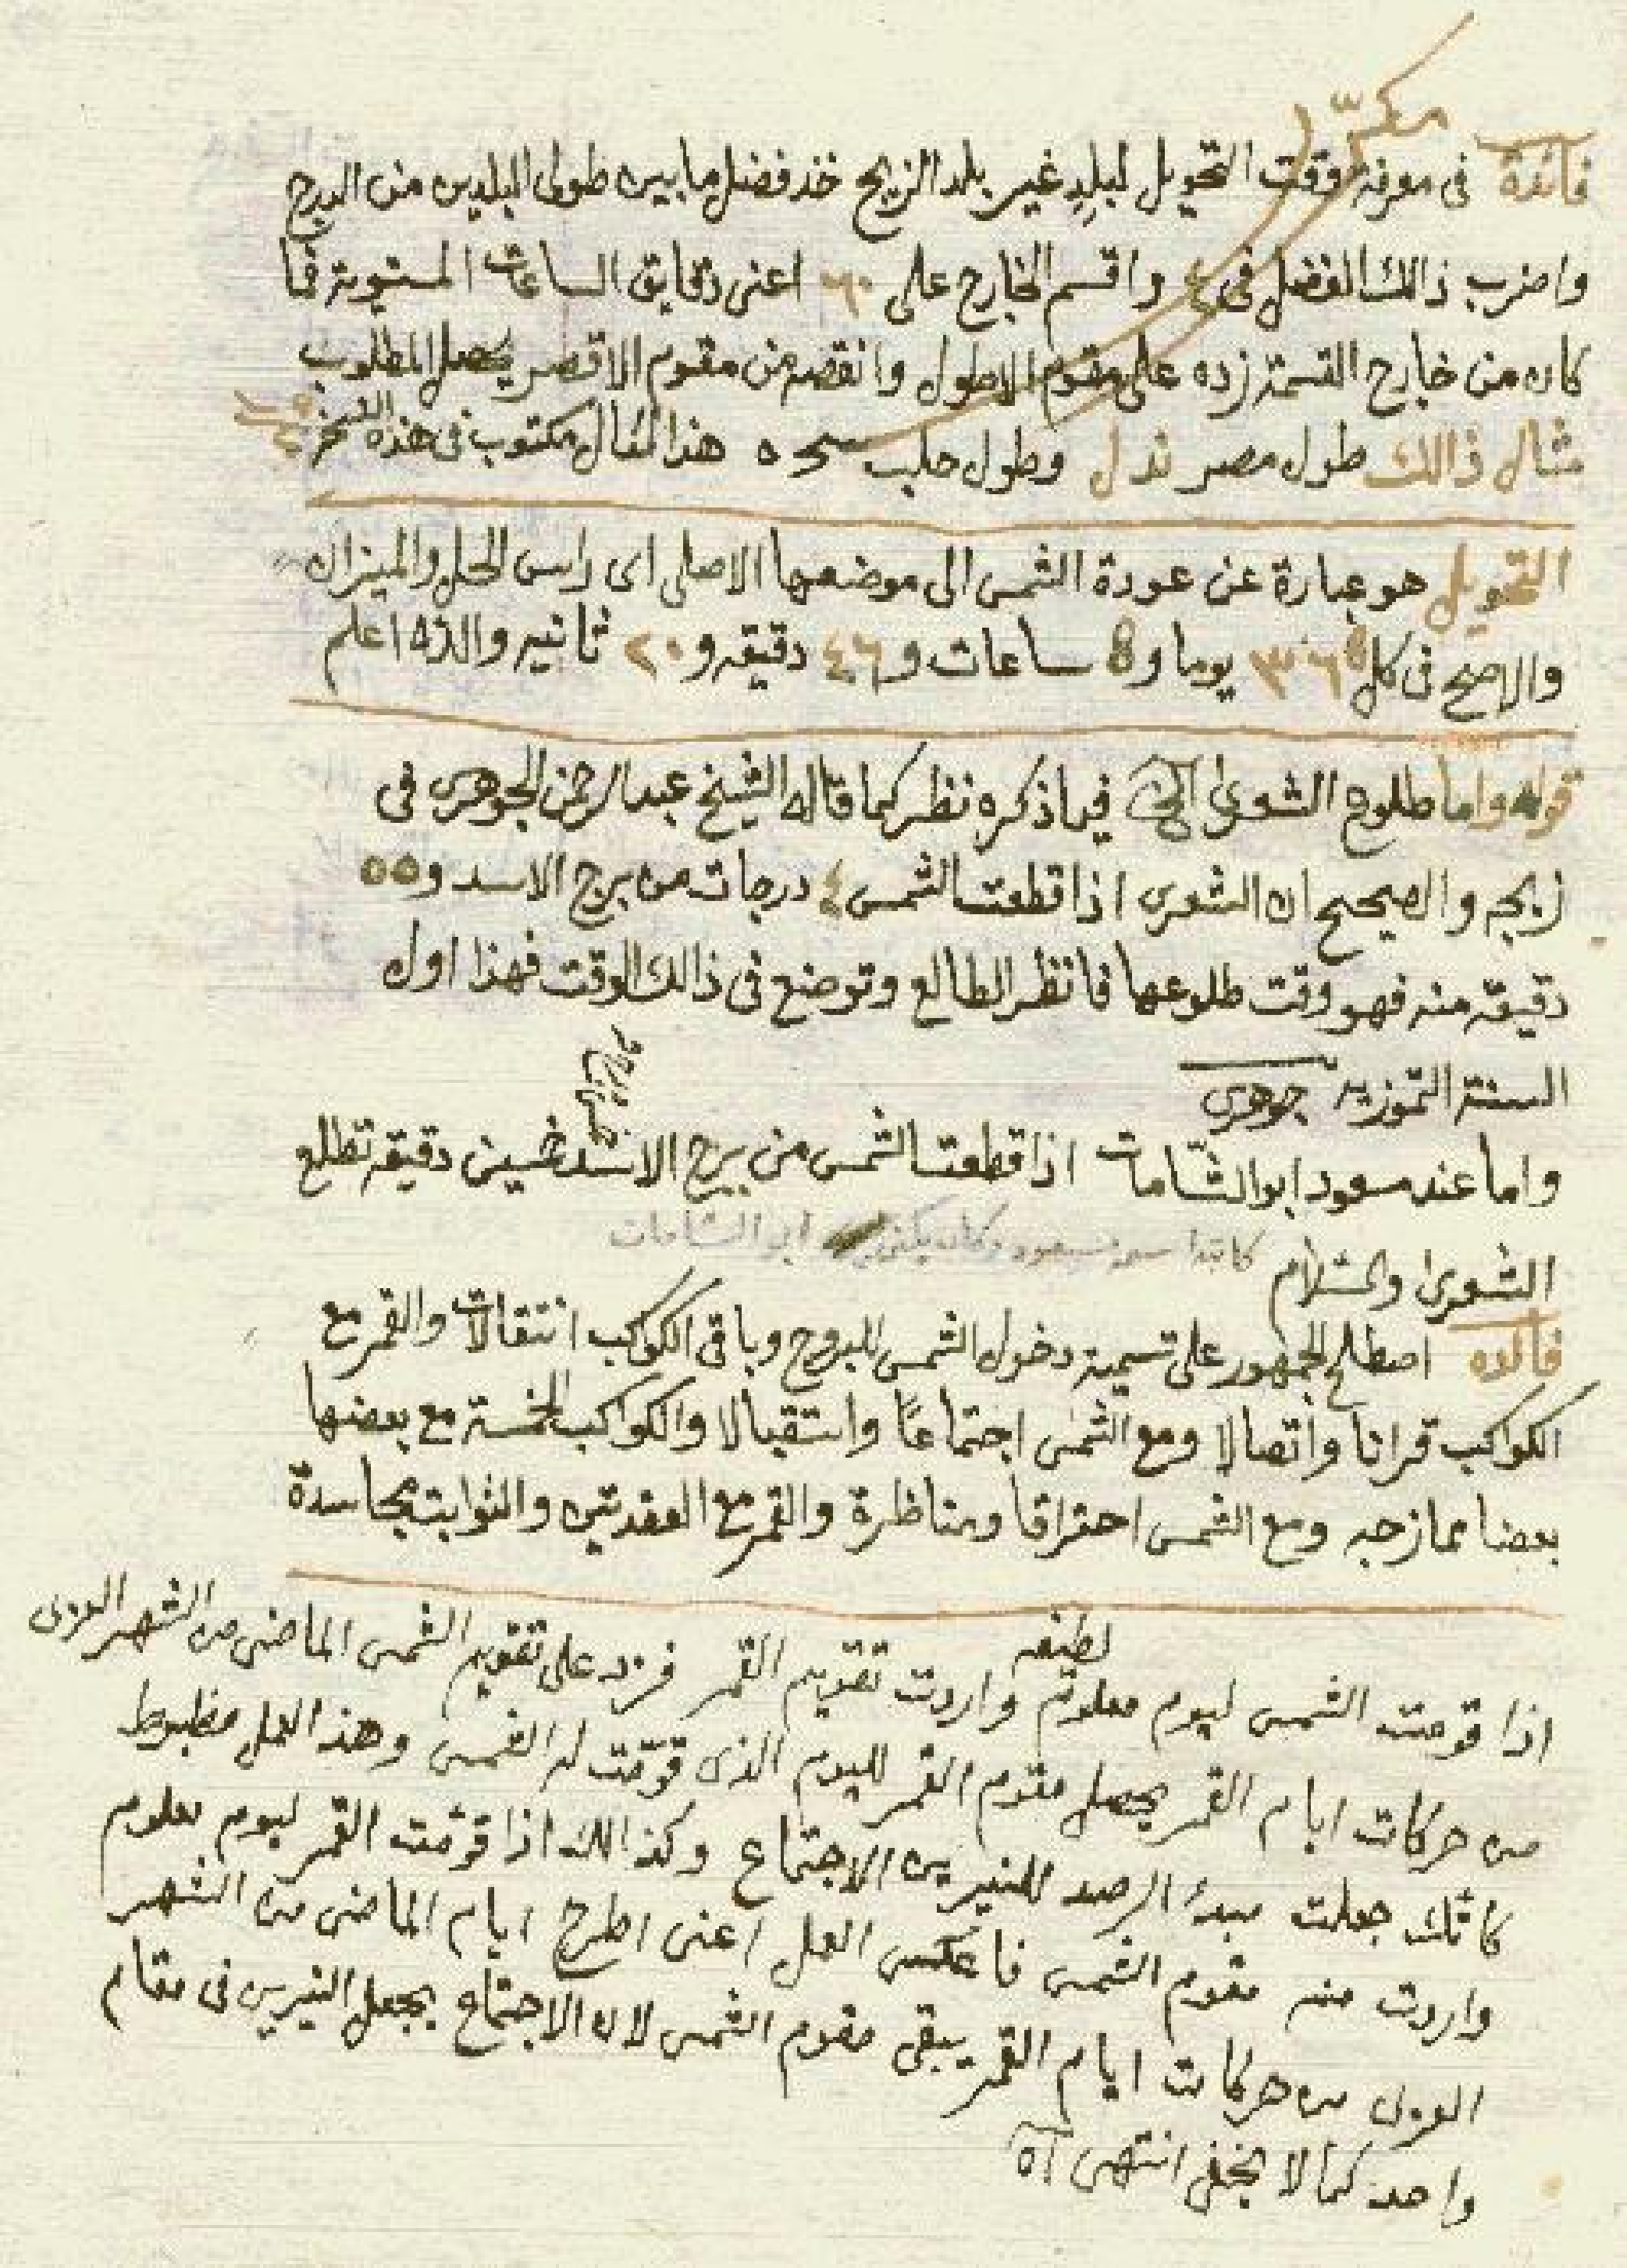 مكرر
فائدة فى معرفة وقت التحويل لبلدٍ غير بلد الزيج خذ فضل ما بين طولى البلدين من الدرج
واضرب ذالك الفضل فى ٤ واقسم الخارج على ٦٠ اعنى دقايق الساعات المستوية فما
كان من خارج القسمة زده على مقوم الاطول وانقصه من مقوم الاقصر يحصل المطلوب
مثال ذالك طول مصر ند ل وطول حلب هذا المثال مكتوب فى هذه النسخة
التحويل هو عبارة عن عودة الشمس الى موضعها الاصلى اى راس الحمل والميزان
والاصح فى كل ٣٦٥ يوما و 5 ساعات و ٤٦ دقيقه و ٢٠ ثانيه والله اعلم
قوله واما طلوع الشعرى الخ فيما ذكره نظر كما قاله الشيخ عبد الرحمن الجوهرى فى
زيجه والصحيح ان الشعرى اذا قطعت الشمس ٤ درجات من برج الاسد و ٥٥
دقيقة منه فهو وقت طلوعها فانظر الطالع وتوضع فى ذالك الوقت فهذا اول
السنة التموزيه جوهرى
واما عند مسعود ابو الشامات اذا قطعت الشمس من برج الاسد خمسين دقيقه تطلع
ابو الشامات
الشعرى والسلام
فائده اصطلح الجمهور على تسمية دخول الشمس للبروج وباقى الكواكب انتقالات والقمر مع
الكواكب قرانا واتصالا ومع الشمس اجتماعًا واستقبالا والكواكب الخمسة مع بعضها
بعضا ممازجه ومع الشمس احتراقا ومناظرة والقمر مع العقدتين والثوابت مجاسدة
لطيفه
اذا قومت الشمس ليوم معلوم واردت تقويم القمر فزد على تقويم الشمس الماضى من الشهر العربى
من حركات ايام القمر يحصل مقوم القمر لليوم الذى قوّمت له الشمس وهذا العمل مظبوط
كانك جعلت مبدأ الرصد للنيرين الاجتماع وكذالك اذا قومت القمر ليوم معلوم
واردت منه مقوم الشمس فاعكس العمل اعنى اطرح ايام الماضى من الشهر
العربى من حركات ايام القمر يبقى مقوم الشمس لان الاجتماع يجعل النيرين فى مقام
واحد كما لا يخفى انتهى اه